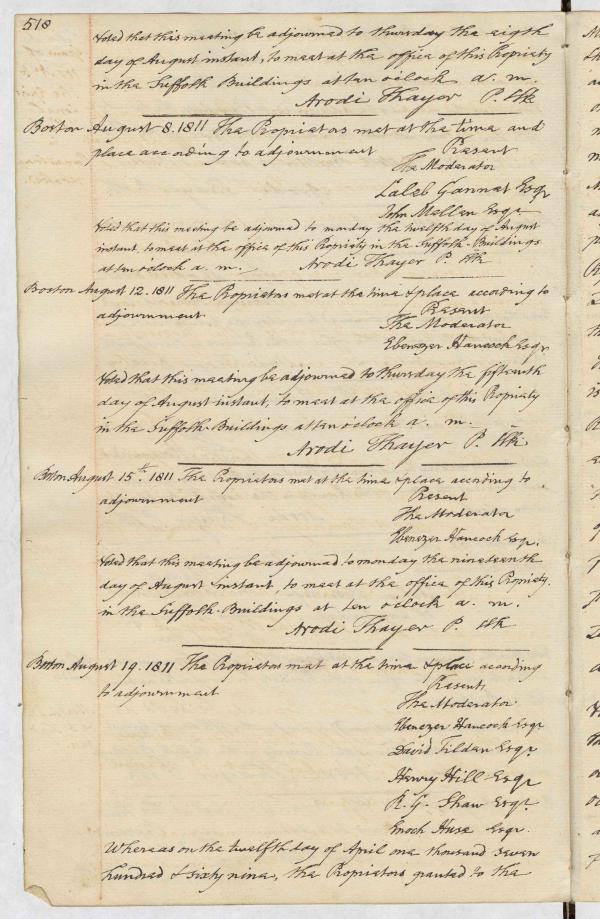 518
Voted that this meeting be adjourned to thursday the eigth
day of August instant, to meet at the office of this Propriety
in the Suffolk Buildings at ten o'clock a. m.
Arodi Thayer P. Clk
Boston August 8. 1811 The Propriators met at the time and
place according to adjournment
Present
The Moderator
Caleb Gannet Esqr
John Mellen Esqr
Voted that this meeting be adjourned to monday the twelfth day of August
instant, to meet at the office of this Propriety in the Suffolk-Buildings
at ten o'clock a. m. Arodi Thayer P. Clk
Boston August 12. 1811 The Propriators met at the time & place according to
adjournment
Present
The Moderator
Ebenezer Hancock Esqr
Voted that this meeting be adjourned to thursday the fifteenth
day of August instant, to meet at the office of this Propriety
in the Suffolk-Buildings at ten o'clock a. m.
Arodi Thayer P. Clk
Boston August 15th. 1811 The Propriators met at the time & place according to
adjournment
Present
The Moderator
Ebenezer Hancock Esqr.
Voted that this meeting be adjourned to monday the nineteenth
day of August instant, to meet at the office of this Propriety.
in the Suffolk-Buildings at ten o'clock a. m.
Arodi Thayer P. Clk
Boston August 19. 1811 The Propriators met at the time & place according
to adjournment
Present
The Moderator
Ebenezer Hancock Esqr
David Tilden Esqr
Henry Hill Esqr
R. G. Shaw Esqr
Enoch Huse Esqr.
Whereas on the twelfth day of April one thousand seven
hundred & sixty nine, the Propriators granted to the